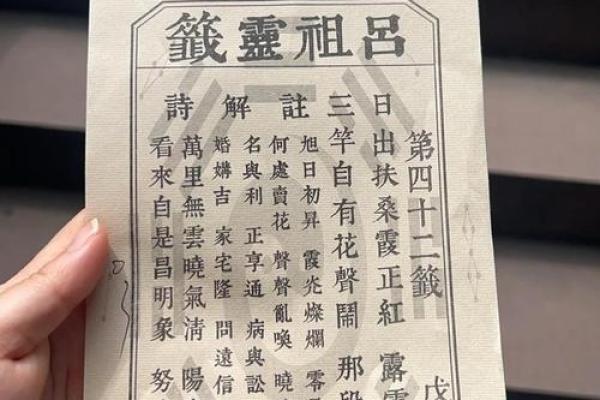 呂祖靈籤
第四十二籤 戊
日出扶桑霞正紅 露
三竿自有花聲鬧 那
註解詩
旭日初昇 霞光燦爛 零
何處賣花 聲聲亂喚 曉
名與利 正享通 病與訟
婚媾吉 家宅隆 問遠信
萬里無雲曉氣清 陽
看來自是昌明象 努